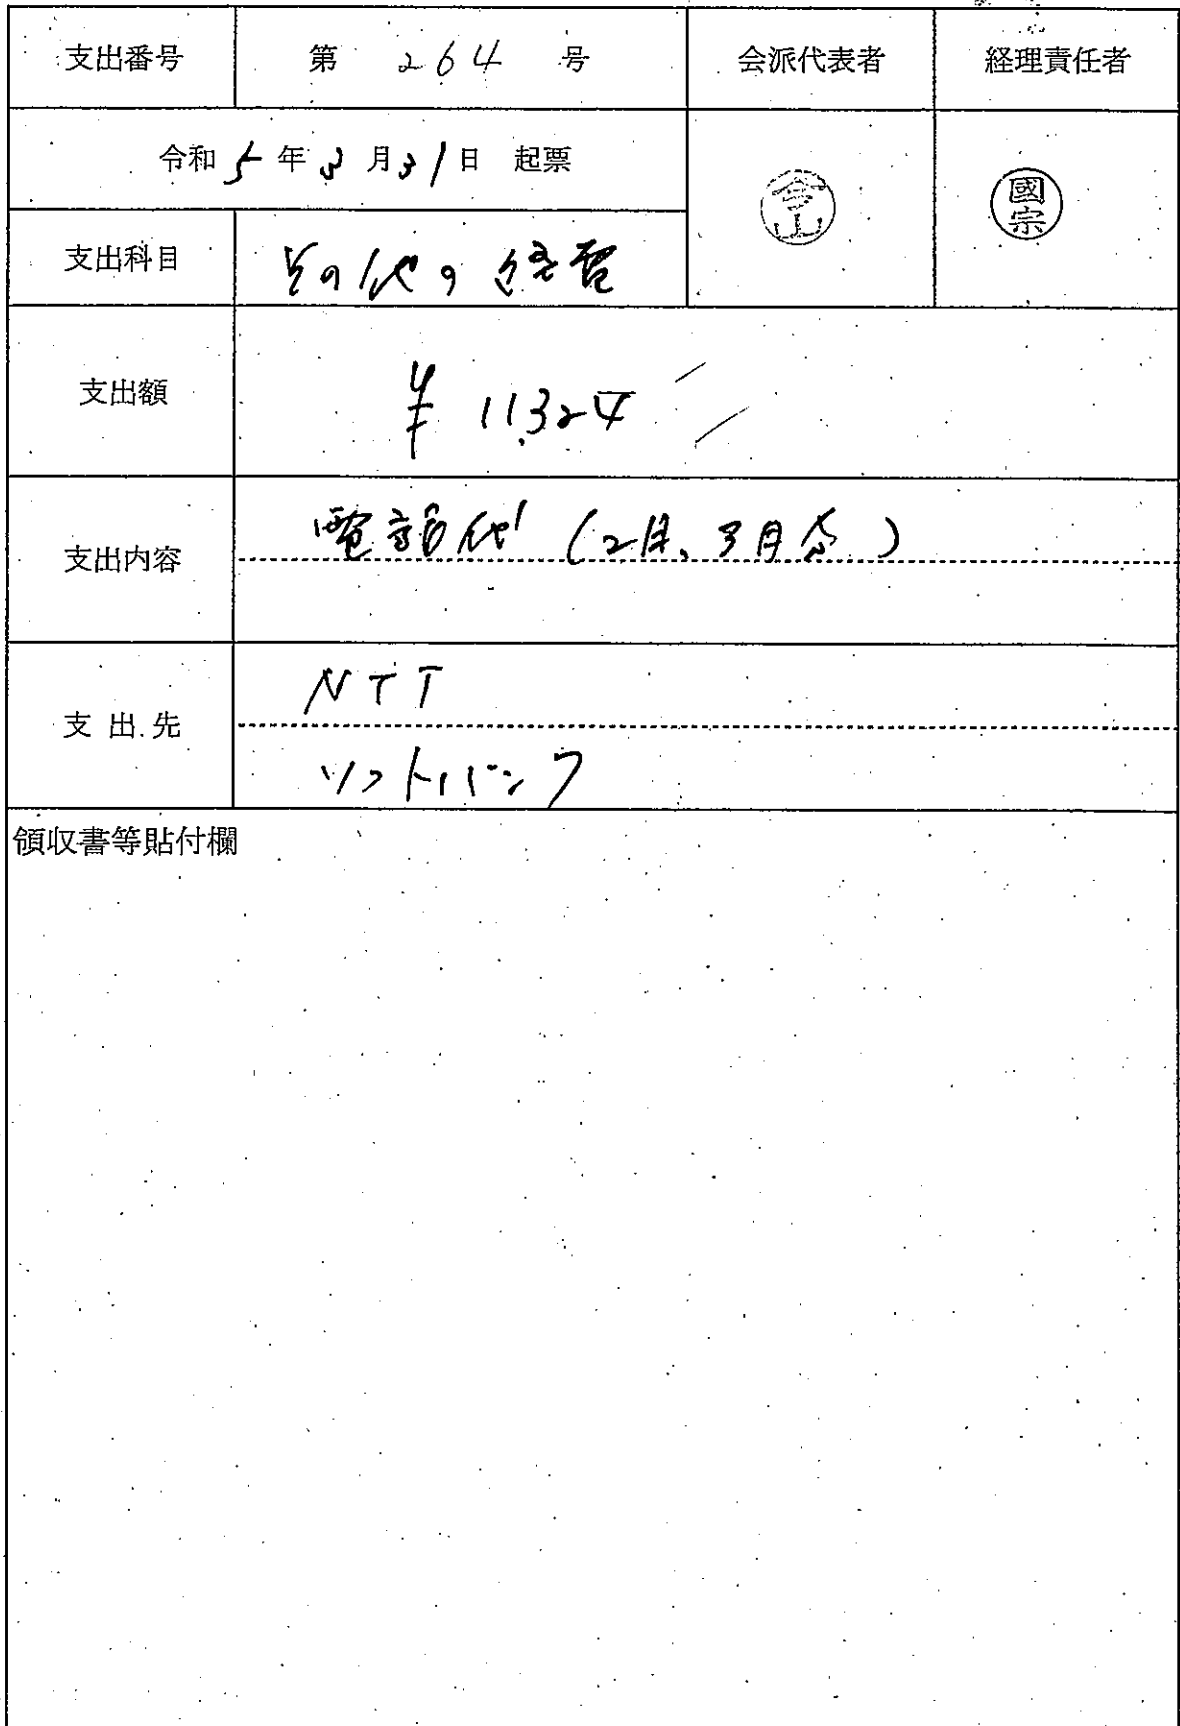 支出番号 第 264 号 会派代表者 経理責任者
令和 5 年 3 月 31 日 起票
今山 國宗
支出科目 その他の経費
支出額 ¥11,324
支出内容 電話代 (2月、3月分)
支出先 NTT
ソフトバンク
領収書等貼付欄